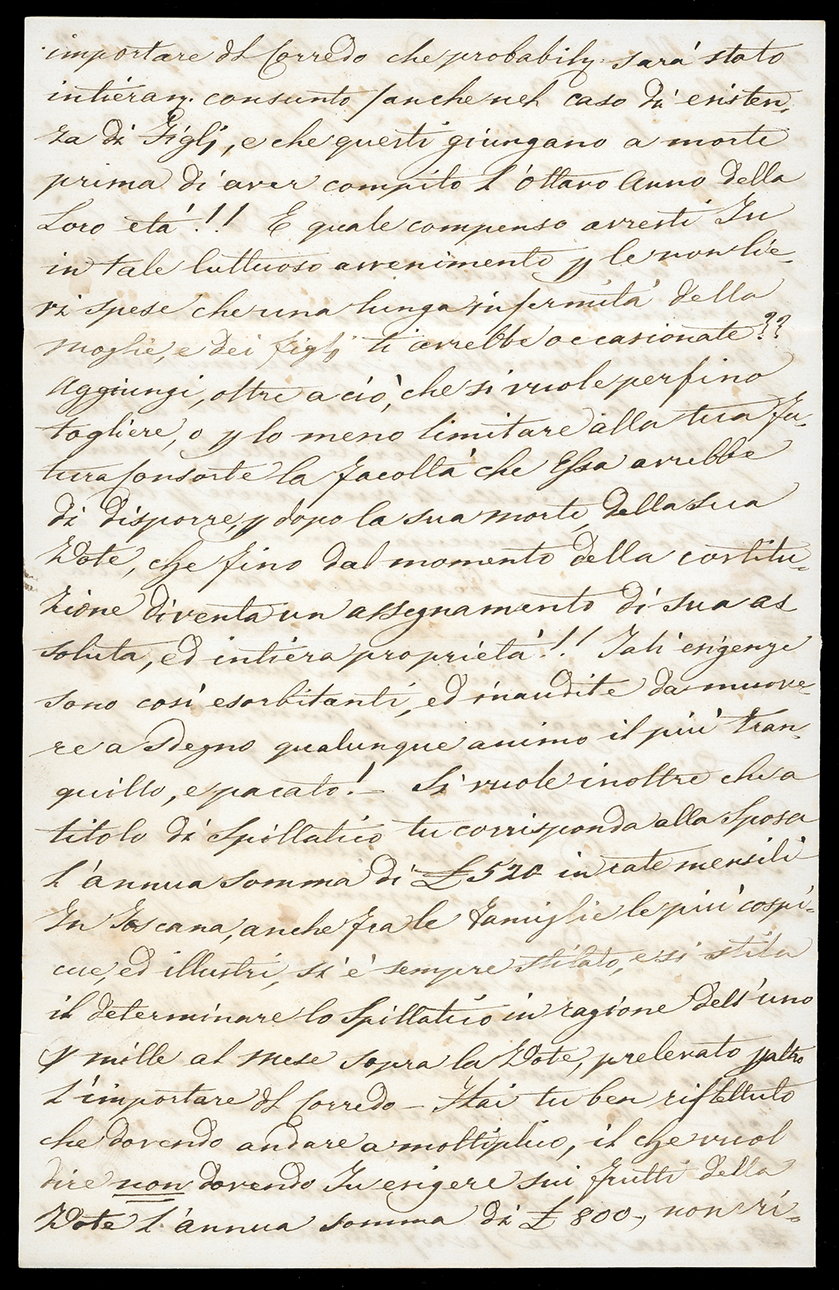 importare del Corredo che probabily. sarà stato
intieram. consunto / anche nel caso di esisten-
za di Figlj, e che questi giungano a morte
prima di aver compito l'ottavo Anno della
Loro età!!! E quale compenso avresti Tu
in tale luttuoso avvenimento p le non lie-
vi spese che una lunga infermità della
Moglie, e dei figlj ti avrebbe occasionate??
Aggiungi, oltre a ciò, che si vuole perfino
togliere, o p lo meno limitare alla tua fu-
tura Consorte la facoltà che Essa avrebbe
di disporre, p dopo la sua morte, della sua
Dote, che fino dal momento della costitu-
zione diventa un assegnamento di sua as
soluta, ed intiera proprietà!! Tali esigenze
sono così esorbitanti, ed inaudite da muove-
re a sdegno qualunque animo il più tran-
quillo, e pacato!- Si vuole inoltre che a
titolo di Spillatico tu corrisponda alla Sposa
l'annua somma di £ 520 in rate mensili
In Toscana, anche fra le Famiglie le più cospi-
cue, ed illustri, si è sempre stilato, e si stila
il determinare lo Spillatico in ragione dell'uno
p mille al mese sopra la Dote, prelevato p altro
l'importare del Corredo - Hai tu ben riflettuto
che dovendo andare a moltiplico, il che vuol
dire non dovendo Tu esigere sui frutti della
Dote l'annua somma di £ 800-, non ri-